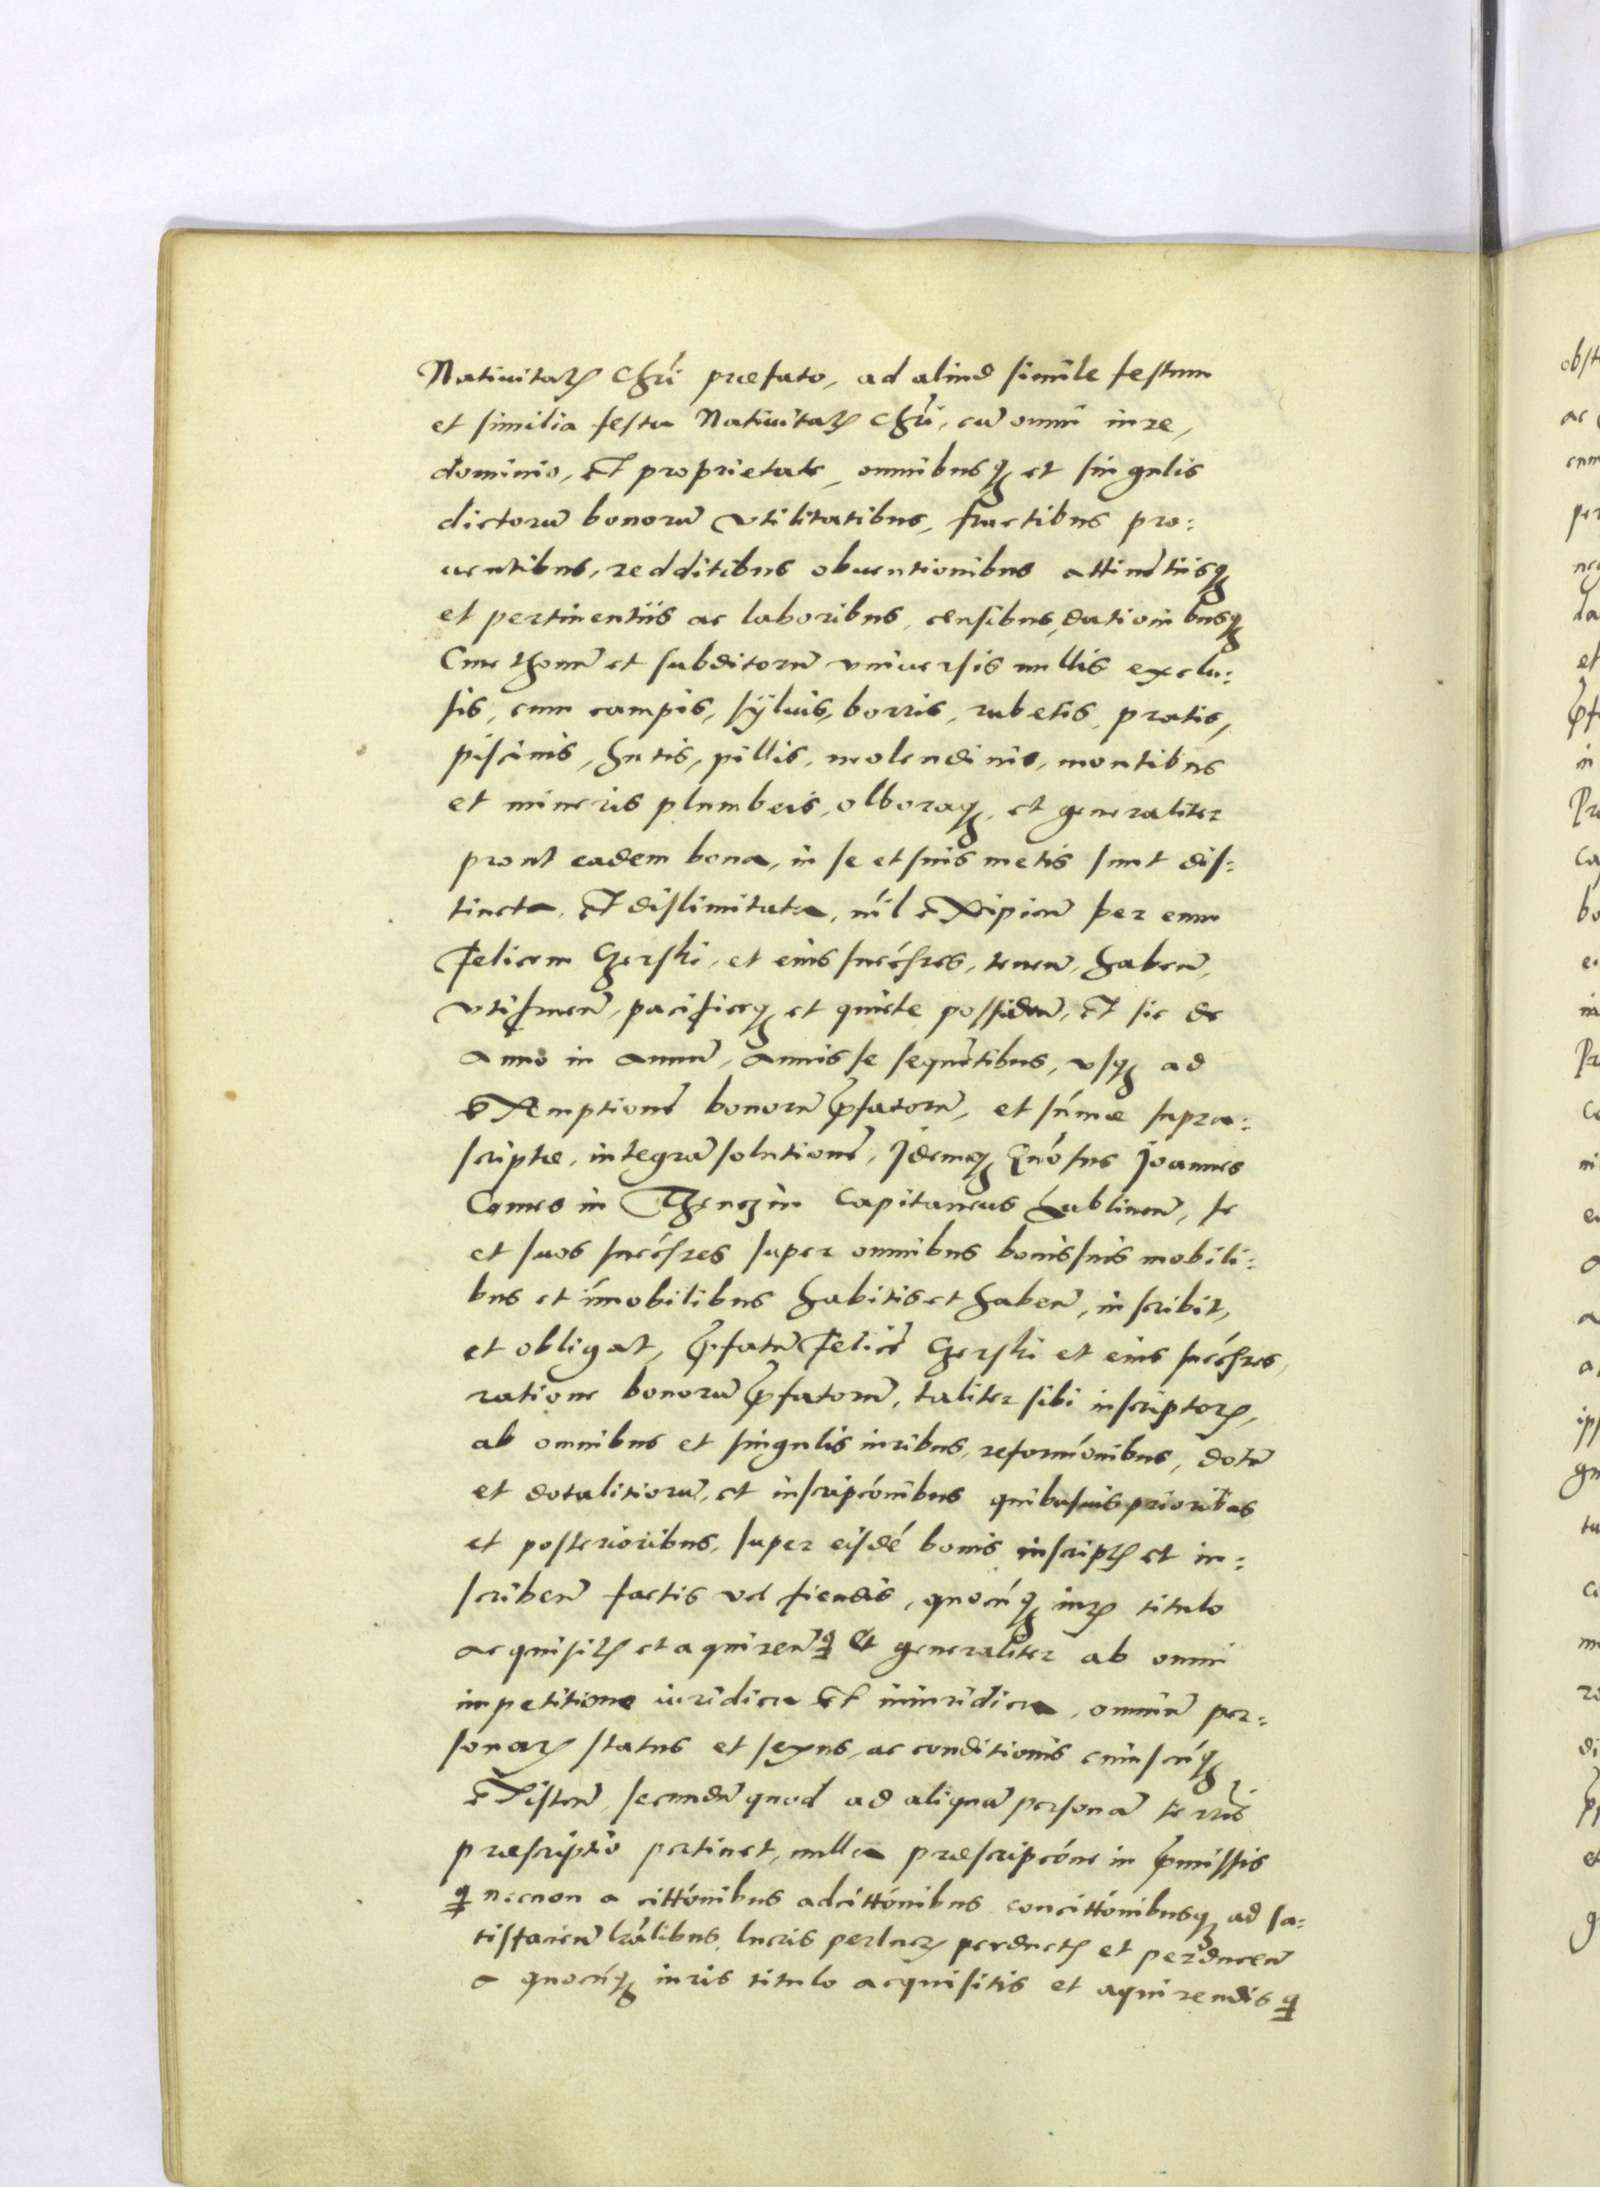 Natiuitatꝭ Chrī praefato, ad aliud simile festum
et similia festa Natiuitatꝭ Chrī, cū omni iure,
dominio, et proprietate, omnibusqꝫ et singulis
dictorū bonorū vtilitatibus, fructibus pro:
uentibus, redditibus obuentionibus attinētiisqꝫ
et pertinentiis ac laboribus, censibus, dationibusqꝫ
Cmethonū et subditorū vniuersis nullis exclu:
sis, cum campis, sÿluis, borris, rubetis, pratis,
piscinis, hutis, pillis, molendinis, montibus
et mineris plumbeis, olboraqꝫ, et generaliter
prout eadem bona, in se et suis metis sunt dis:
tincta, et dislimitata, nīl excipiēn per eum
Felicem Gerski, et eius succēsres, tenen̄, haben̄,
vtifruen̄, pacificeqꝫ et quiete possiden̄, Et sic de
anno in annū, annis se sequētibus, vsqꝫ ad
exemptionē bonorū p̄fatorū, et sūmae supra:
scriptae, integrā solutionē, Idemqꝫ Gn̄osus Joannes
Comes in Thenczin Capitaneus Lublinen̄, se
et suos succēsres super omnibus bonis suis mobili:
bus et īmobilibus habitis et haben̄, inscribit,
et obligat, p̄fatū Felicē Gerski et eius succēsres,
ratione bonorū p̄fatorū, taliter sibi inscriptorꝭ,
ab omnibus et singulis iuribus, reformōnibus, dotū
et dotalitiorū, et inscripcōnibus quibusuis prioribus
et posterioribus, super eisdē bonis inscriptꝭ et in:
scriben̄ factis vel fiendis, quocūqꝫ iurꝭ titulo
acquisitꝭ et aquiren̄ Et generaliter ab omni
impetitione iuridica et iniuridica, omniū per:
sonarꝭ status et sexus, ac conditionis cuiuscūqꝫ
existen̄, secundū quod ad aliquā personā terris
praescriptio pertinet, nulla praescripcōne in p̄missis
necnon a cittōnibus adcittōnibus concittōnibusqꝫ ad sa:
tisfacien̄ lrālibus, lucris perlucrꝭ perductꝭ et perducen̄
a quocūqꝫ iuris titulo acquisitis et aquirendis